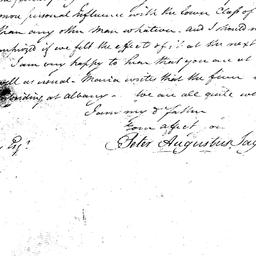 more personal Influence with the lower Class of
than any other Man whatever. and I should n
surprized if we felt the effect of it at the next
I am very happy to hear that you are at
well as usual. Maria writes that the fever
at albany. We are all quite we
I am my d Father
Your affect. on
Peter Augustus Jay
Esqr